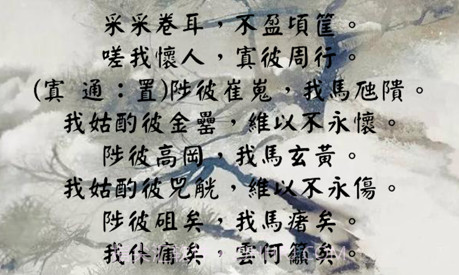 采采卷耳，不盈頃筐。
嗟我懷人，寘彼周行。
(寘 通：置)陟彼崔嵬，我馬虺隤。
我姑酌彼金罍，維以不永懷。
陟彼高岡，我馬玄黃。
我姑酌彼兕觥，維以不永傷。
陟彼砠矣，我馬瘏矣。
我仆痡矣，雲何籲矣。